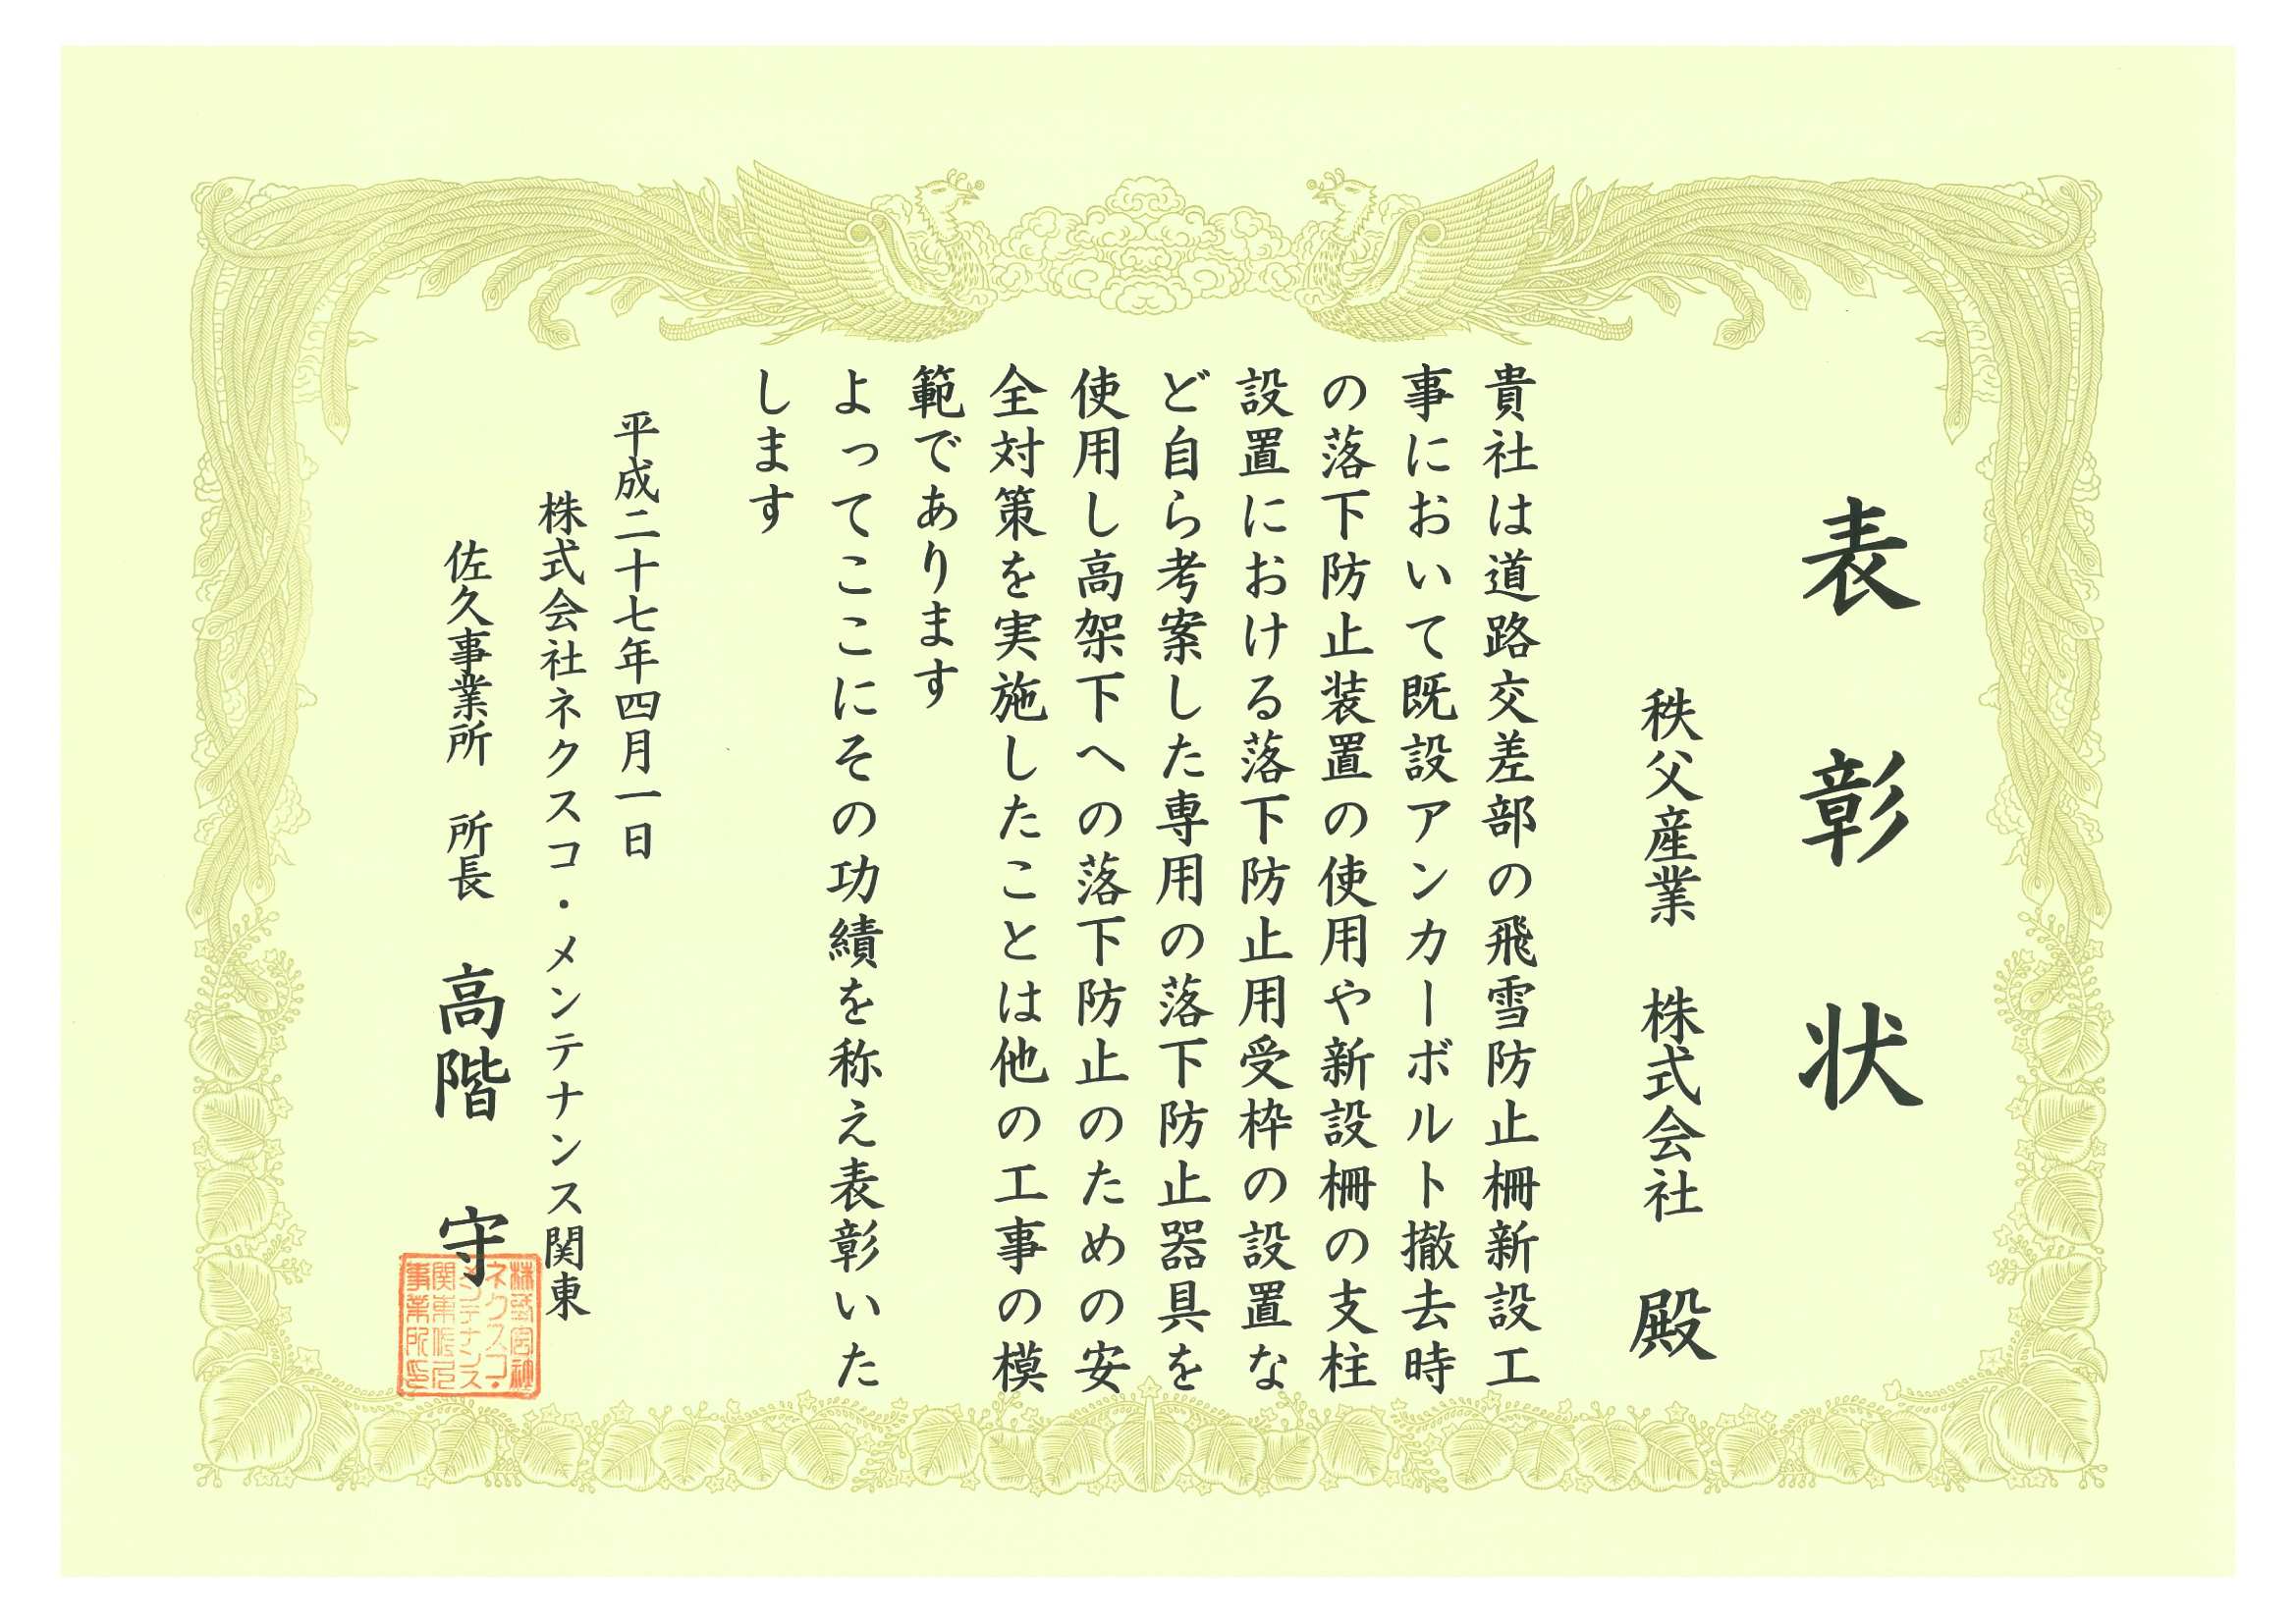 表彰状
秩父産業　株式会社　殿
貴社は道路交差部の飛雪防止柵新設工
事において既設アンカーボルト撤去時
の落下防止装置の使用や新設柵の支柱
設置における落下防止用受枠の設置な
ど自ら考案した専用の落下防止器具を
使用し高架下への落下防止のための安
全対策を実施したことは他の工事の模
範であります
よってここにその功績を称え表彰いた
します
平成二十七年四月一日
株式会社ネクスコ・メンテナンス関東
佐久事業所　所長　高階　守
株式会社
ネクスコ・
メンテナンス
関東佐久
事業所印